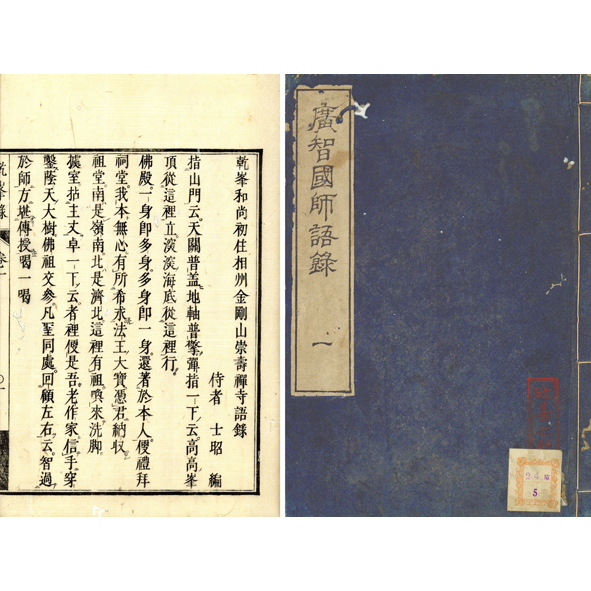 廣智國師語錄
一
5
乾峯和尚初住相州金剛山崇壽禪寺語錄
侍者 士昭 編
指山門云天關普蓋地軸普擎彈指一下云高高峯
頂從這裡立深深海底從這裡行
佛殿一身即多身多身即一身還著於本人便禮拜
祠堂我本無心有所希求法王大寶憑君納収
祖堂南是嶺南北是濟北這裡有祖喚來洗脚
據室拈主丈卓一下云者裡便是吾老作家信手穿
鑿蔭天大樹佛祖交參凡至同處回顧左右云智過
於師方堪傳授喝一喝